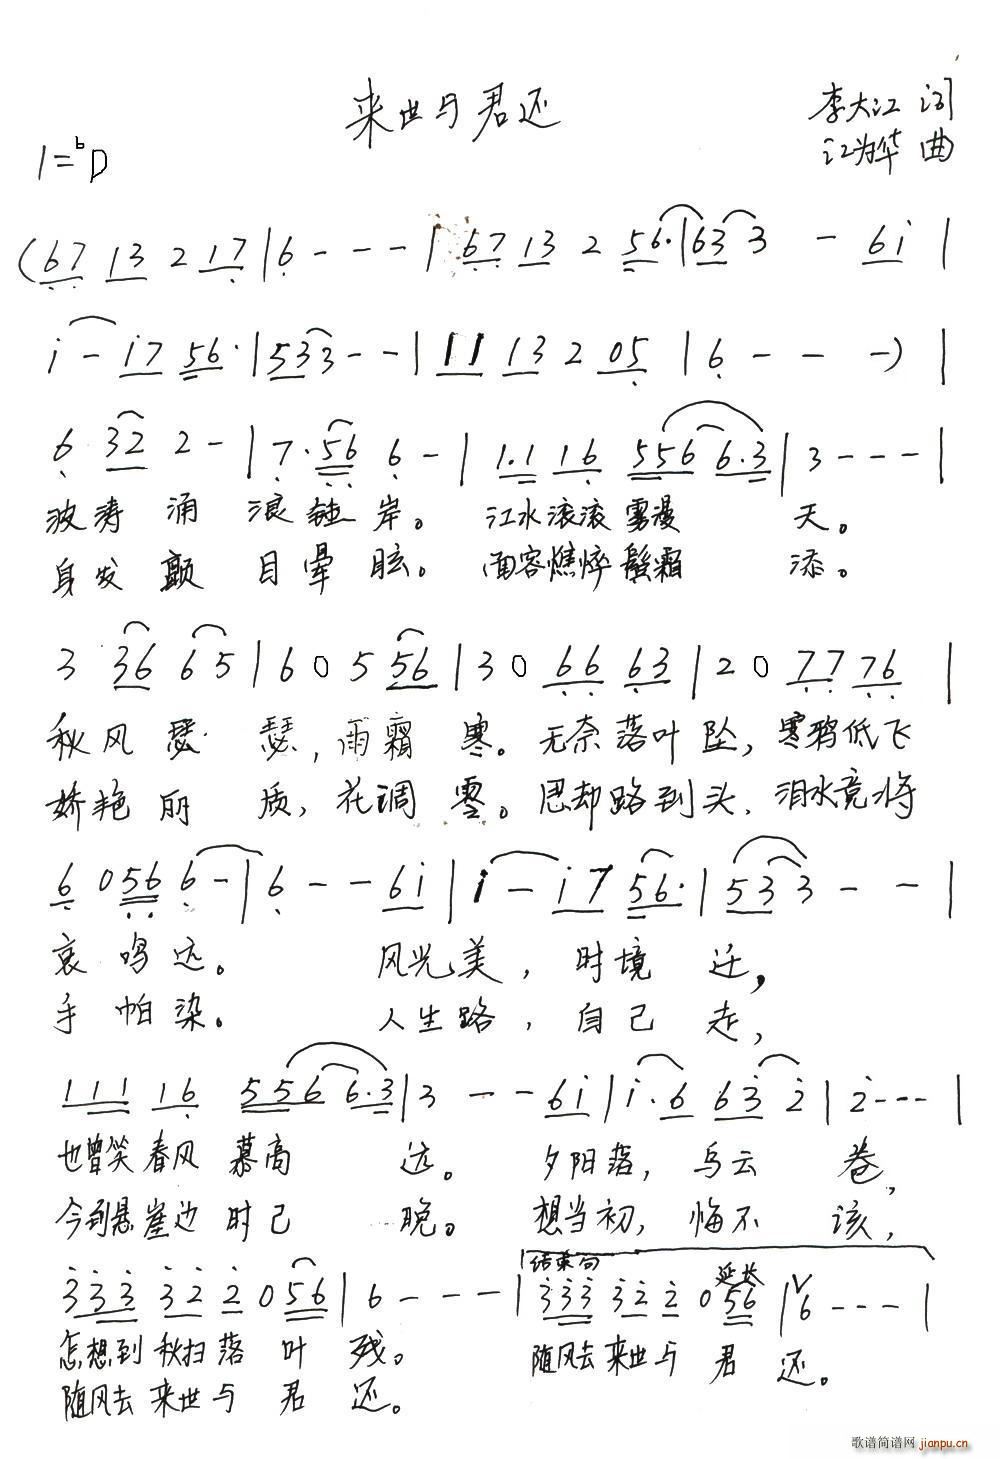 来世与君还
李大江 词
1=bD
江为华 曲
(67 13 2 17 | 6 - - - | 67 13 2 56· | 63 3 3 - 6i |
i - i7 56· | 533 - - | 11 13 2 05 | 6 - - -) |
6 32 2 - | 7·56 6 - | 1.1 16 556 6.3 | 3 - - - |
波涛涌 浪 岸。 江水滚滚雾漫 天。
身发颤 目晕眩。 面容憔悴鬓霜 添。
3 36 65 | 6 0 5 56 | 3 0 66 63 | 2 0 77 76 |
秋风瑟 瑟, 雨霜 寒。 无奈落叶坠, 寒鸦低飞
娇艳丽 质, 花调 零。 思却路到头, 泪水竟将
6 0 56 6 - | 6 - - 6i | i - i7 56· | 533 - - |
哀鸣远。 风光美, 时境 迁,
手帕染。 人生路, 自己 走,
111 16 556 6.3 | 3 - - 6i | i·6 63 2 | 2 - - - |
也曾笑春风慕高 远。 夕阳落, 乌云 卷,
今到悬崖边时已 晚。 想当初, 悔不 该,
结束句 延长
333 32 2 0 56 | 6 - - - | 333 32 2 0 56 | 6 - - - |
怎想到秋扫落 叶 残。 随风去来世与 君 还。
随风去来世与 君 还。
歌谱简谱网 jianpu.cn